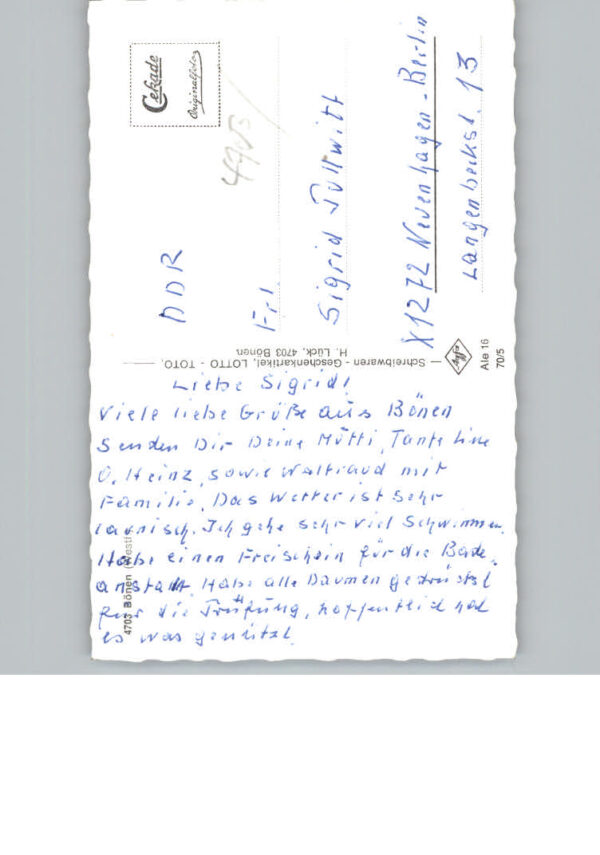 Cekade
Originalfoto
4703
DDR
Frl.
Sigrid
X1272 Neuenhagen-Berlin
Langenbeckst. 13
Schreibwaren - Geschenkartikel, LOTTO - TOTO,
H. Lück, 4703 Bönen
Agfa
Ale 16
70/5
4703 Bönen (Westf
Liebe Sigrid!
Viele liebe Grüße aus Bönen
senden Dir Deine Mutti, Tante Line
O. Heinz, sowie Waltraud mit
Familie. Das Wetter ist sehr
launisch. Ich gehe sehr viel Schwimmen.
Habe einen Freischein für die Bade-
anstalt. Habe alle Daumen gedrückt
für die Prüfung, hoffentlich hat
es was genützt.